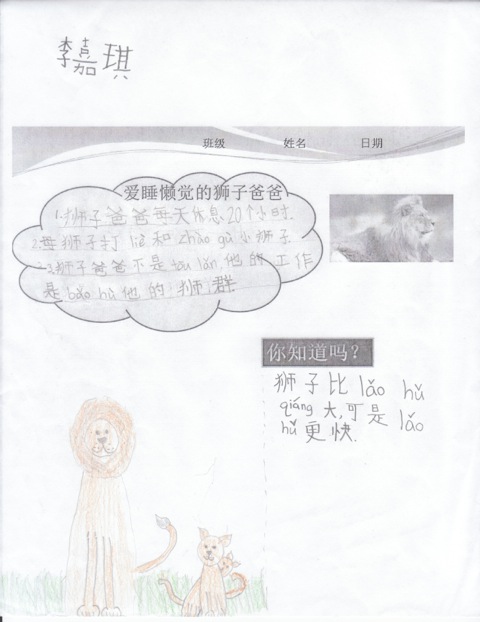 李嘉琪
班级 姓名 日期
爱睡懒觉的狮子爸爸
1.狮子爸爸每天休息20个小时.
2.母狮子打 liè 和 zhào gù 小狮子
3.狮子爸爸不是 tōu lǎn, 他的工作
是 bǎo hù 他的狮群
你知道吗?
狮子比 lǎo hǔ
qiáng 大,可是 lǎo
hǔ 更快.